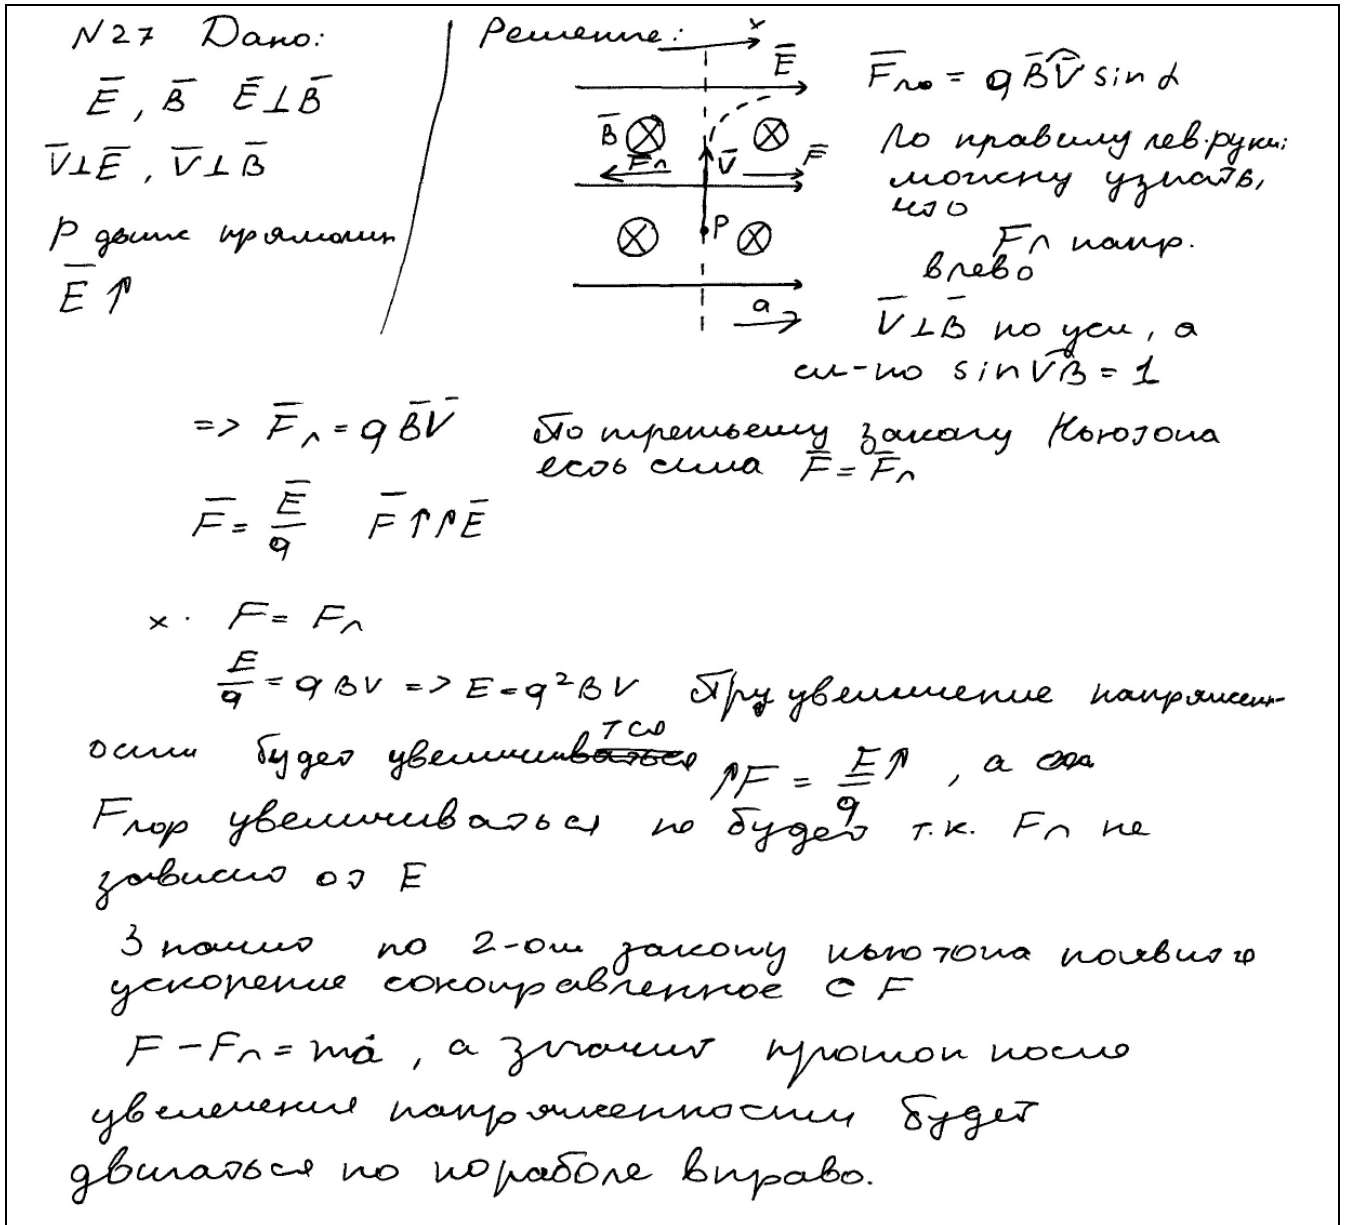 N27 Дано:
E̅, B̅ E̅⊥B̅
V̅⊥E̅, V̅⊥B̅
P движ прямолин
E̅ ↑
Решение:
x
E̅
B̅
Fл
V̅
F̅
P
a
F̅ло = qB̅V̅ sin α
По правилу лев.руки:
можну узнать,
что
Fл напр.
влево
V̅⊥B̅ по усл, а
сл-но sin VB = 1
=> F̅л = qB̅V̅
По третьему закону Ньютона
есть сила F̅ = F̅л
F̅ = E̅/q F̅↑↑E̅
x. F = Fл
E/q = qBV => E = q²BV При увеличение напряжен-
ости будет увеличив тся ↑F = E↑/q , а
Fлор увеличиваться не будет т.к. Fл не
зависит от E
Значит по 2-ом закону ньютона появится
ускорение сонаправленное с F
F – Fл = ma̅, а значит протон после
увеличения напряженности будет
двигаться по пораболе вправо.